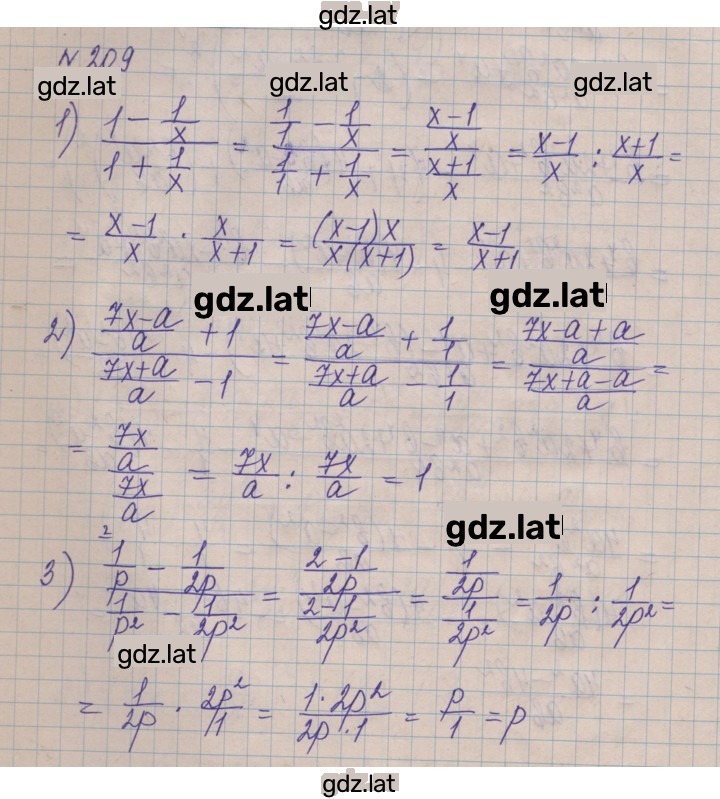 gdz.lat
N 209
gdz.lat gdz.lat gdz.lat
1) (1 - 1/x)/(1 + 1/x) = (1/1 - 1/x)/(1/1 + 1/x) = ((x-1)/x)/((x+1)/x) = (x-1)/x : (x+1)/x =
= (x-1)/x · x/(x+1) = ((x-1)x)/(x(x+1)) = (x-1)/(x+1)
gdz.lat gdz.lat
2) ((7x-a)/a + 1)/((7x+a)/a - 1) = ((7x-a)/a + 1/1)/((7x+a)/a - 1/1) = ((7x-a+a)/a)/((7x+a-a)/a) =
= (7x/a)/(7x/a) = 7x/a : 7x/a = 1
gdz.lat
2
3) (1/p - 1/2p)/(1/p² - 1/2p²) = ((2-1)/2p)/((2-1)/2p²) = (1/2p)/(1/2p²) = 1/2p : 1/2p² =
gdz.lat
= 1/2p · 2p²/1 = (1·2p²)/(2p·1) = p/1 = p
gdz.lat